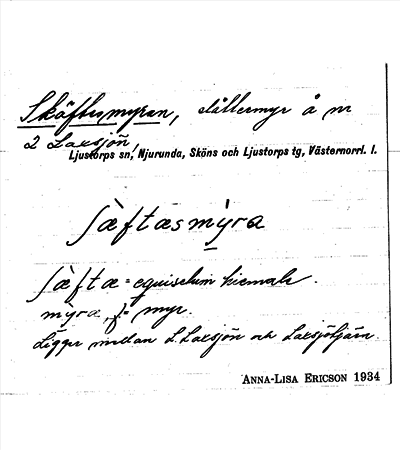 Skäftesmyran, slåttermyr å nr
2 Laxsjön,
Ljustorps sn, Njurunda, Sköns och Ljustorps tg, Västernorrl. l.
ʃæ̀ftæsmỳra
ʃæ̀ftæ = equisetum hiemale.
mỳra, f. = myr.
Ligger mellan L. Laxsjön och Laxsjötjärn.
ANNA-LISA ERICSON 1934